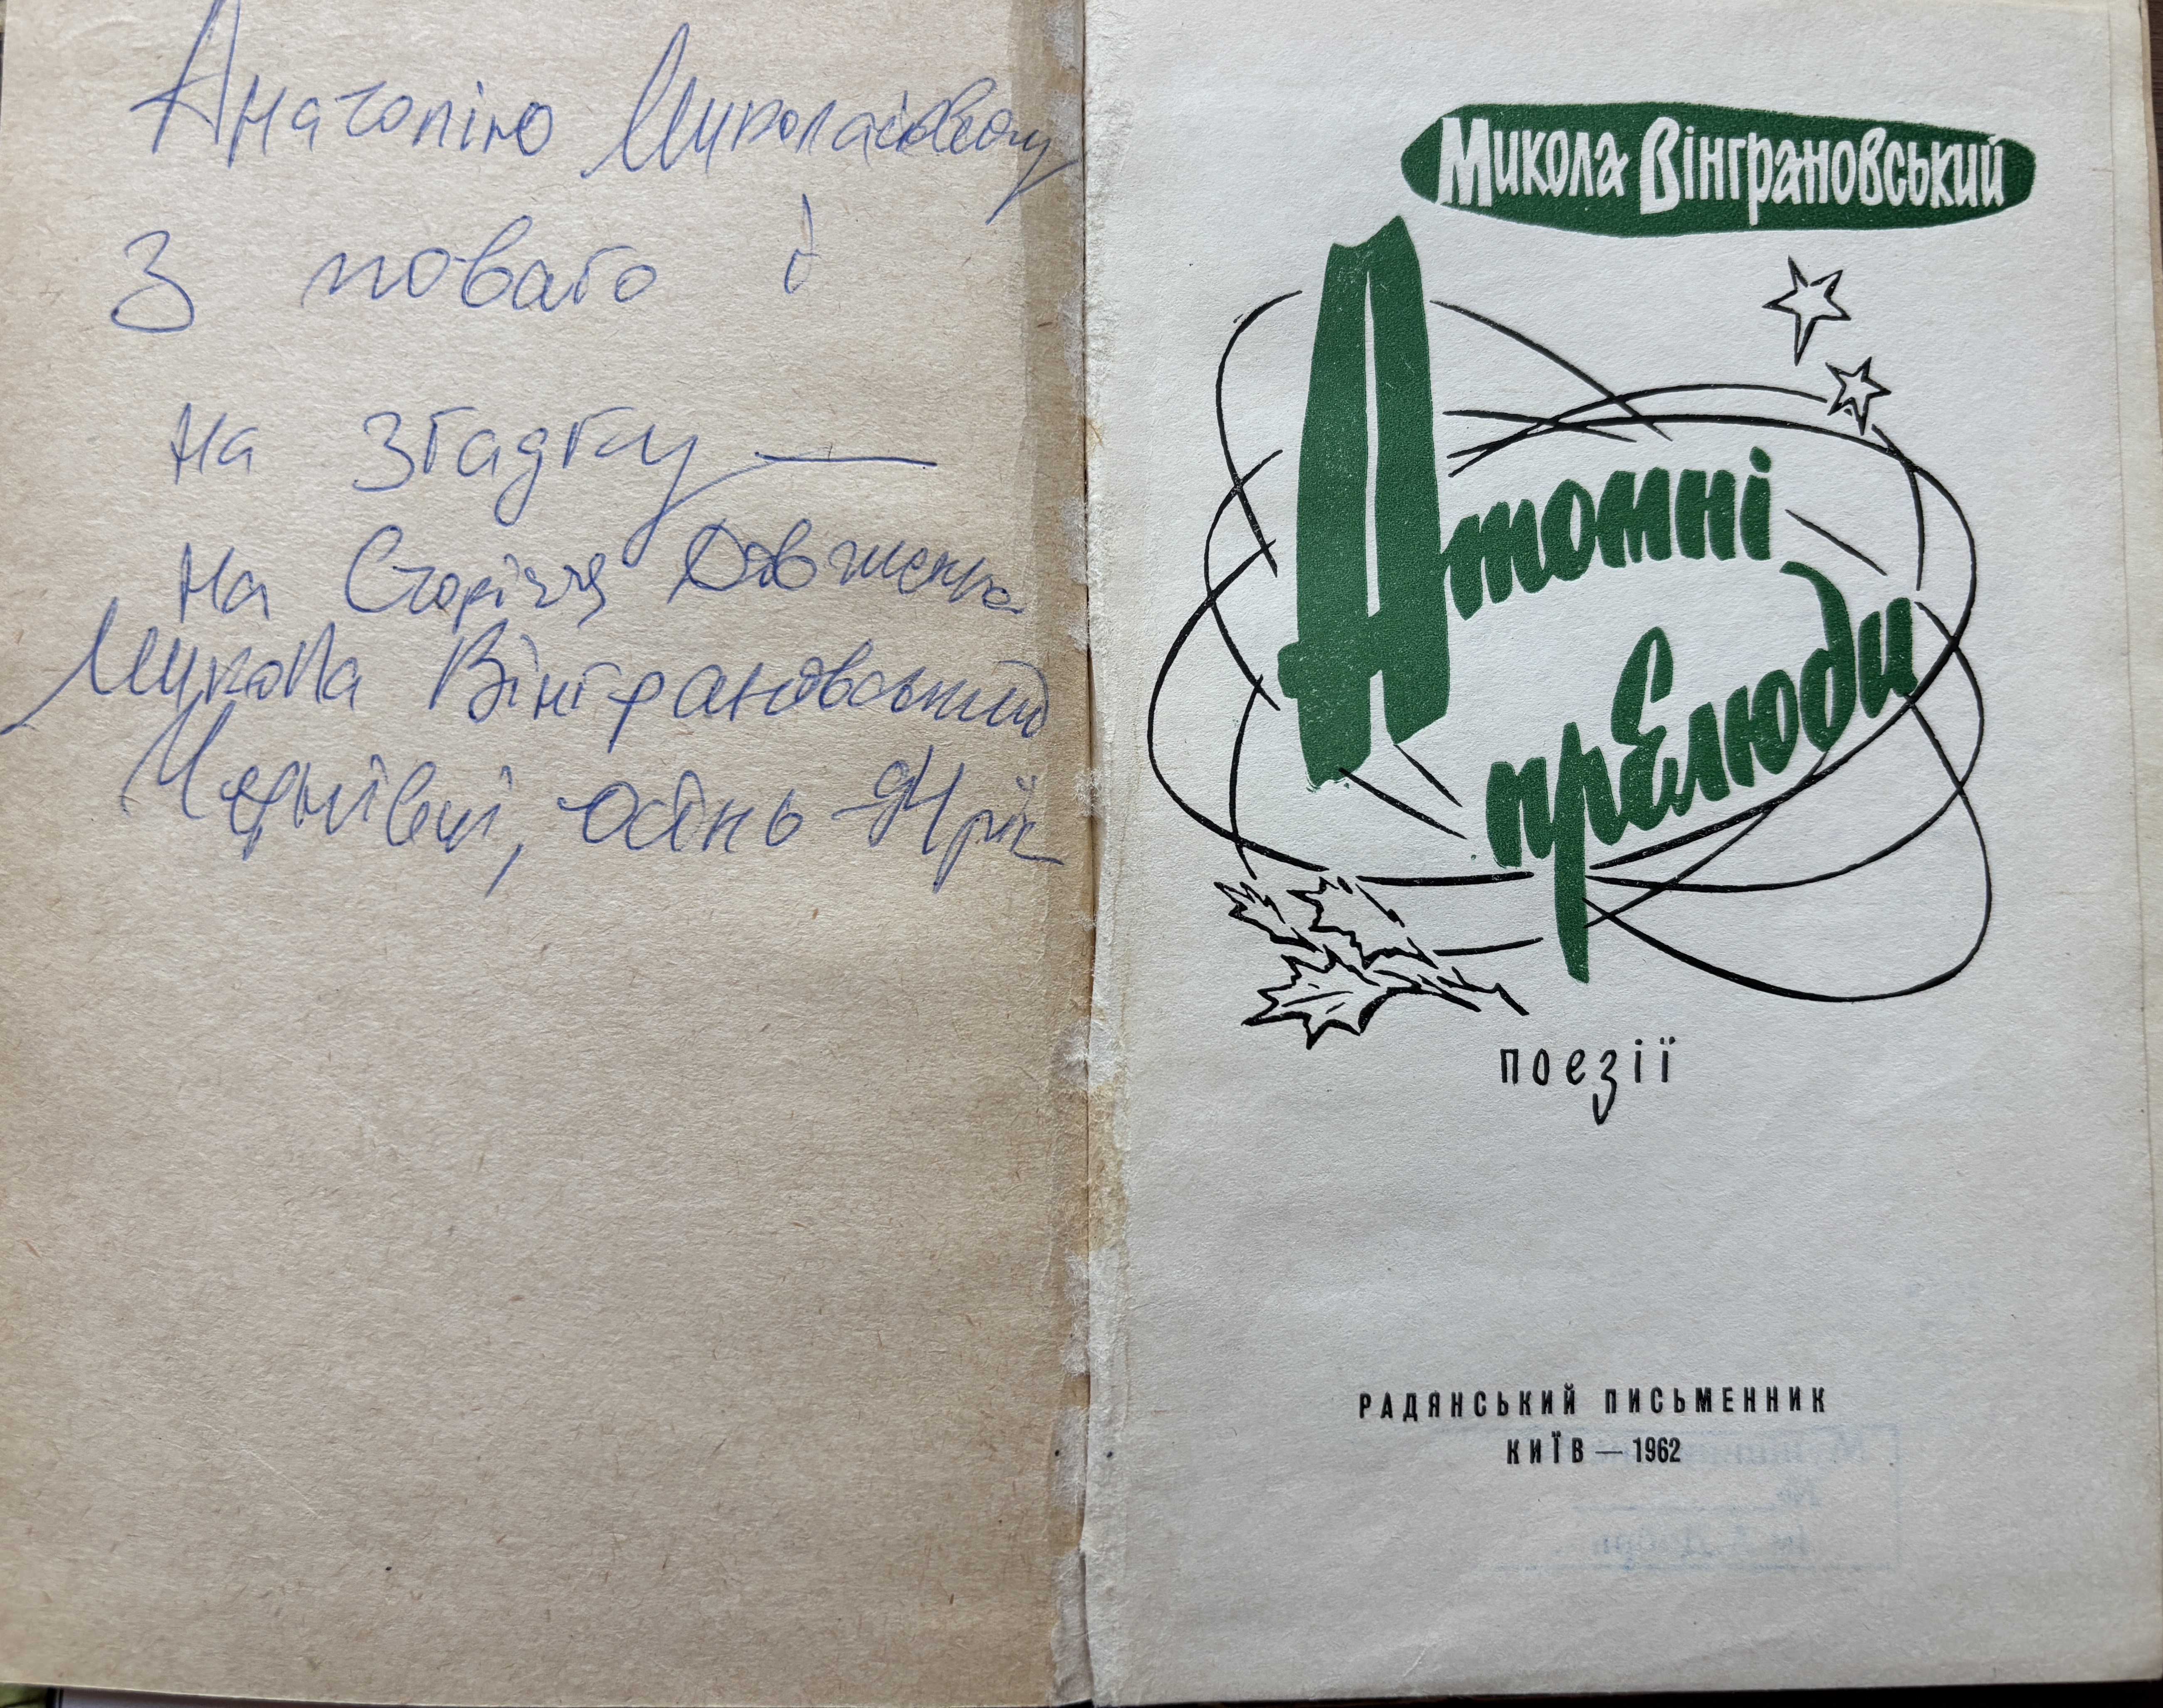 Анатолію Миколайовичу
З повагою
на згадку —
на Сторіччя Довженка
Микола Вінграновський
Чернівці, осінь 94 рік
Микола Вінграновський
Атомні
прелюди
поезії
РАДЯНСЬКИЙ ПИСЬМЕННИК
КИЇВ — 1962